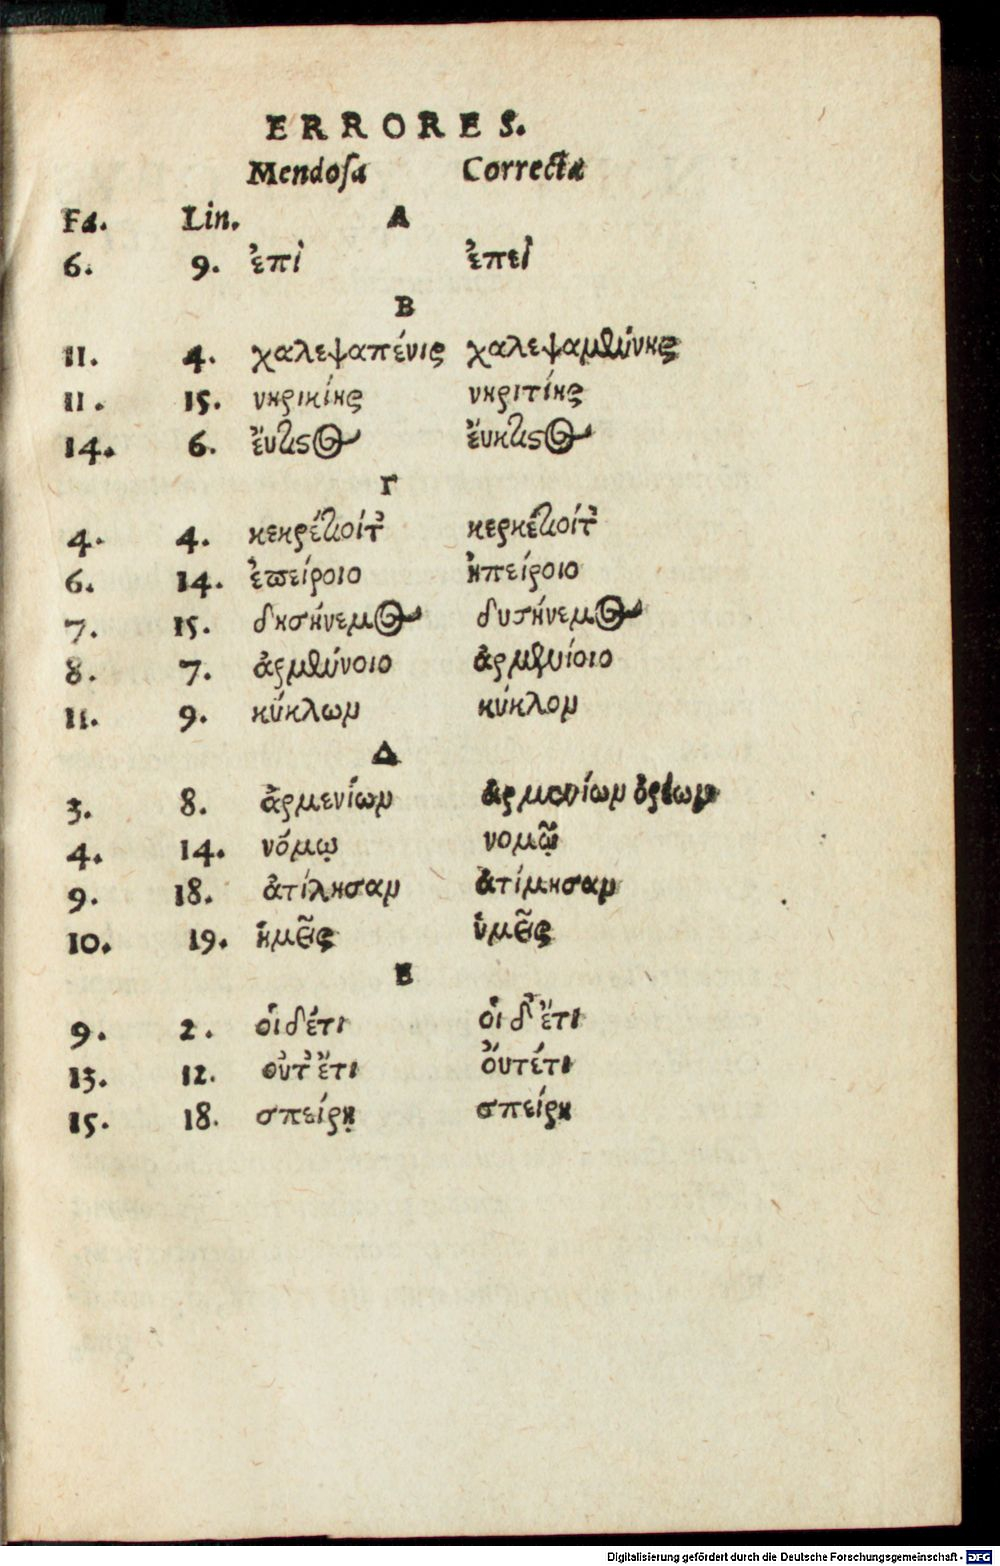 ERRORES.
Mendosa Correcta
Fa. Lin. A
6. 9. ἐπὶ ἐπεὶ
B
11. 4. χαλεψαπένις χαλεψαμένης
11. 15. νηρικίης νηριτίης
14. 6. ἔυκτιστος
Γ
4. 4.
6. 14. ἐπείροιο ἠπείροιο
7. 15. δησήνεμος δυσήνεμος
8. 7.
11. 9. κύκλων κύκλον
Δ
3. 8. ἀρμενίων ἀρμονίων
4. 14. νόμῳ νομῷ
9. 18. ἀτίλησαν ἀτίμησαν
10. 19. ἡμεῖς ὑμεῖς
E
9. 2. οἱ δέτι οἱ δ' ἔτι
13. 12. οὐτ' ἔτι οὔτέτι
15. 18. σπείρῃ σπείρη
Digitalisierung gefördert durch die Deutsche Forschungsgemeinschaft - DFG